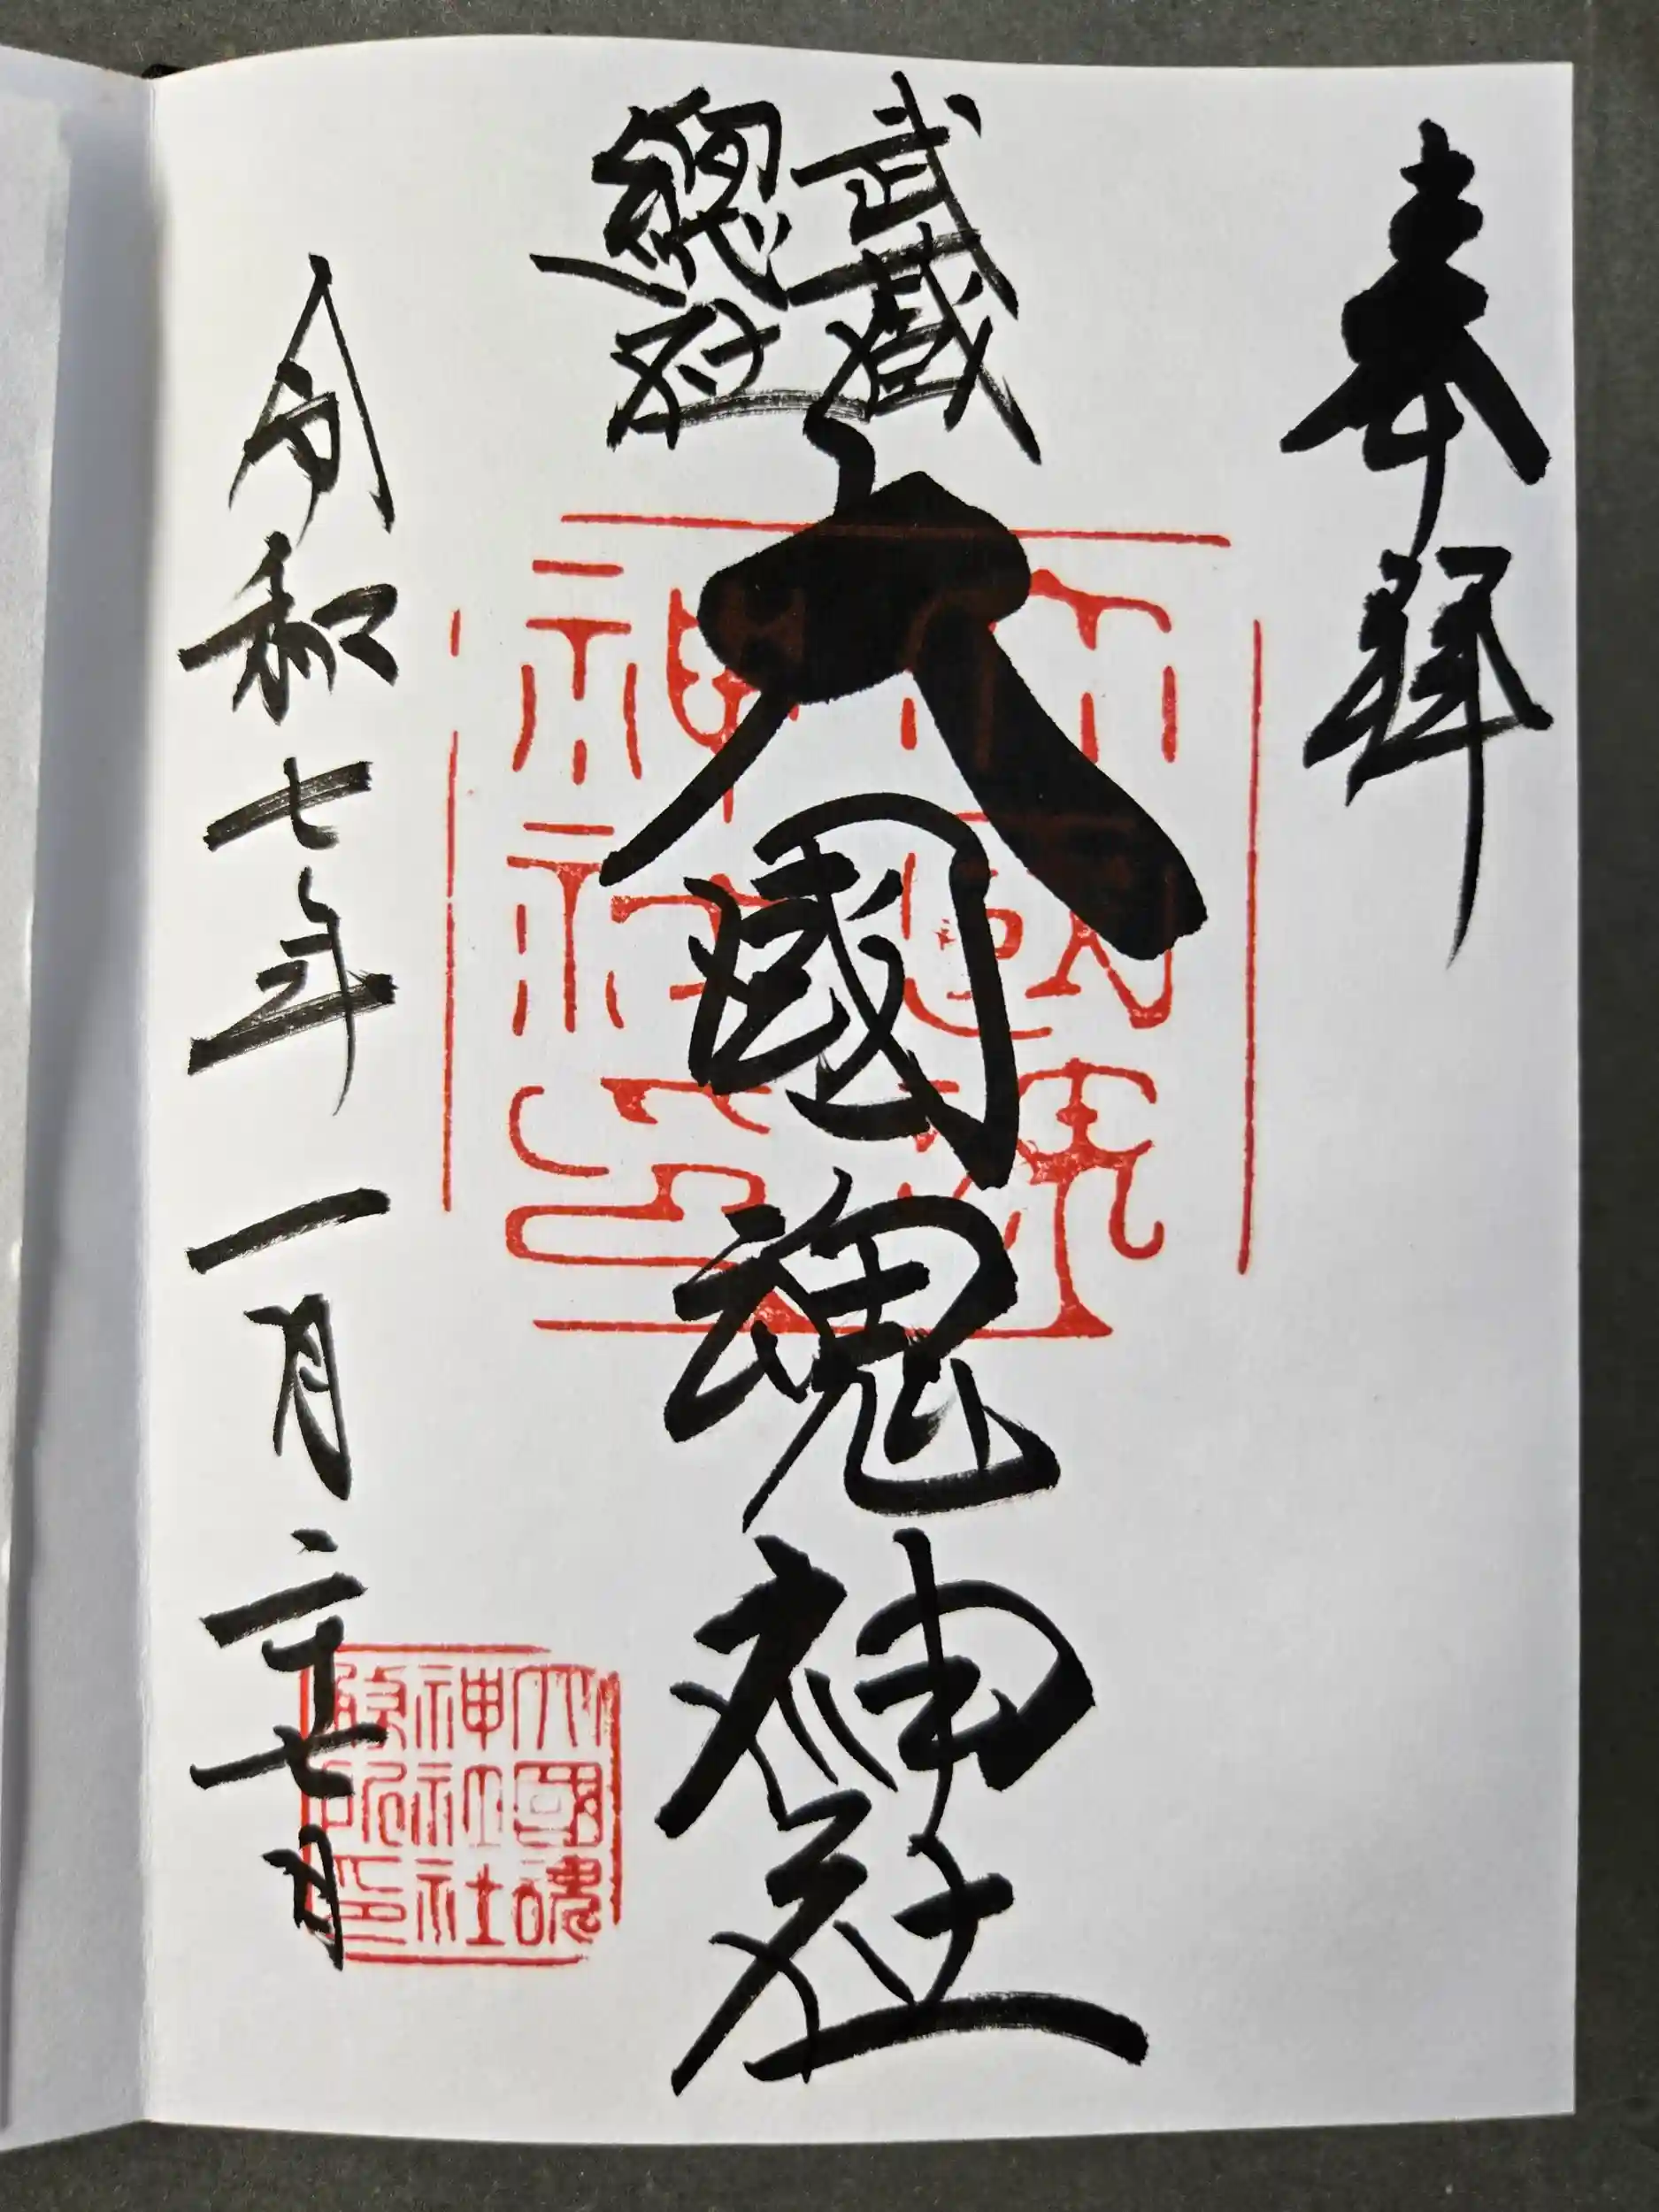 奉拜
武藏
總社
大國魂神社
令和七年一月二十七日
大國魂
神社神社
大國魂
神社